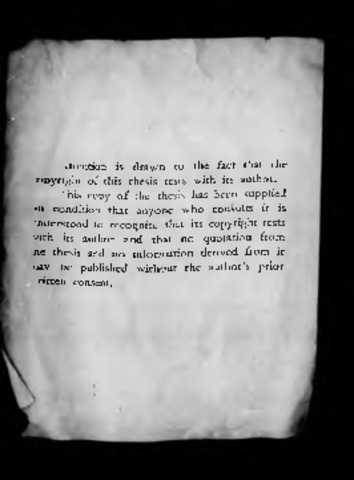 Attention is drawn to the fact that the
copyright of this thesis rests with its author.
This copy of the thesis has been supplied
on condition that anyone who consults it is
understood to recognise that its copyright rests
with its author and that no quotation from
the thesis and no information derived from it
may be published without the author's prior
written consent.